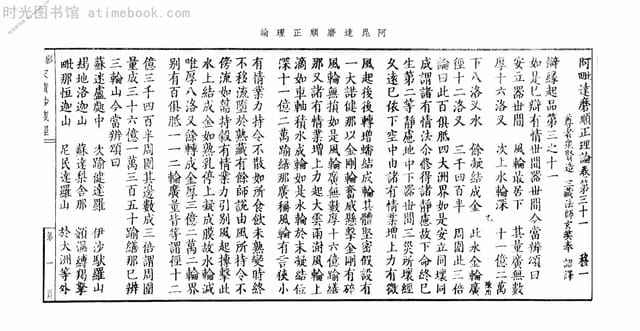 时光图书馆 www.book4fan.com
阿毘達磨順正理論
阿毗達磨順正理論卷第三十一
尊者眾賢造 三藏法師玄奘奉 詔譯
辯緣起品第三之十一
如是已辯有情世間器世間今當辯頌曰
安立器世間 風輪最居下 其量廣無數
厚十六洛叉 次上水輪深 十一億二萬
下八洛叉水 餘凝結成金 此水金輪廣
徑十二洛叉 三千四百半 周圍此三倍
論曰此百俱胝四大洲界如是安立同壞同
成謂諸有情法尒修得諸靜慮故下命終已
生第二等靜慮地中下器世間三災所壞經
久遠已依下空中由諸有情業增上力有微
風起後後轉增蟠結成輪其體堅密假設有
一大諾健那以金剛輪奮威懸擊金剛有碎
風輪無損如是風輪廣無數厚十六億踰繕
那又諸有情業增上力起大雲雨澍風輪上
滴如車軸積水成輪如是水輪於未凝結位
深十一億二萬踰繕那廣稱風輪有言狹小
有情業力持令不散如所食飲未熟變時終
不移流墮於熟藏有餘師說由風所持令不
傍流如篅持穀有情業力引別風起摶擊此
水上結成金如熟乳停上凝成膜故水輪減
唯厚八洛叉餘轉成金厚三億二萬二輪界
別有百俱胝一一二輪廣量皆等謂徑十二
億三千四百半周圍其邊數成三倍謂周圍
量成三十六億一萬三百五十踰繕那已辯
三輪山今當辯頌曰
蘇迷盧處中 次踰健達羅 伊沙馱羅山
朅地洛迦山 蘇達梨舍那 頞濕縛羯拏
毗那怛迦山 尼民達羅山 於大洲等外
第一頁